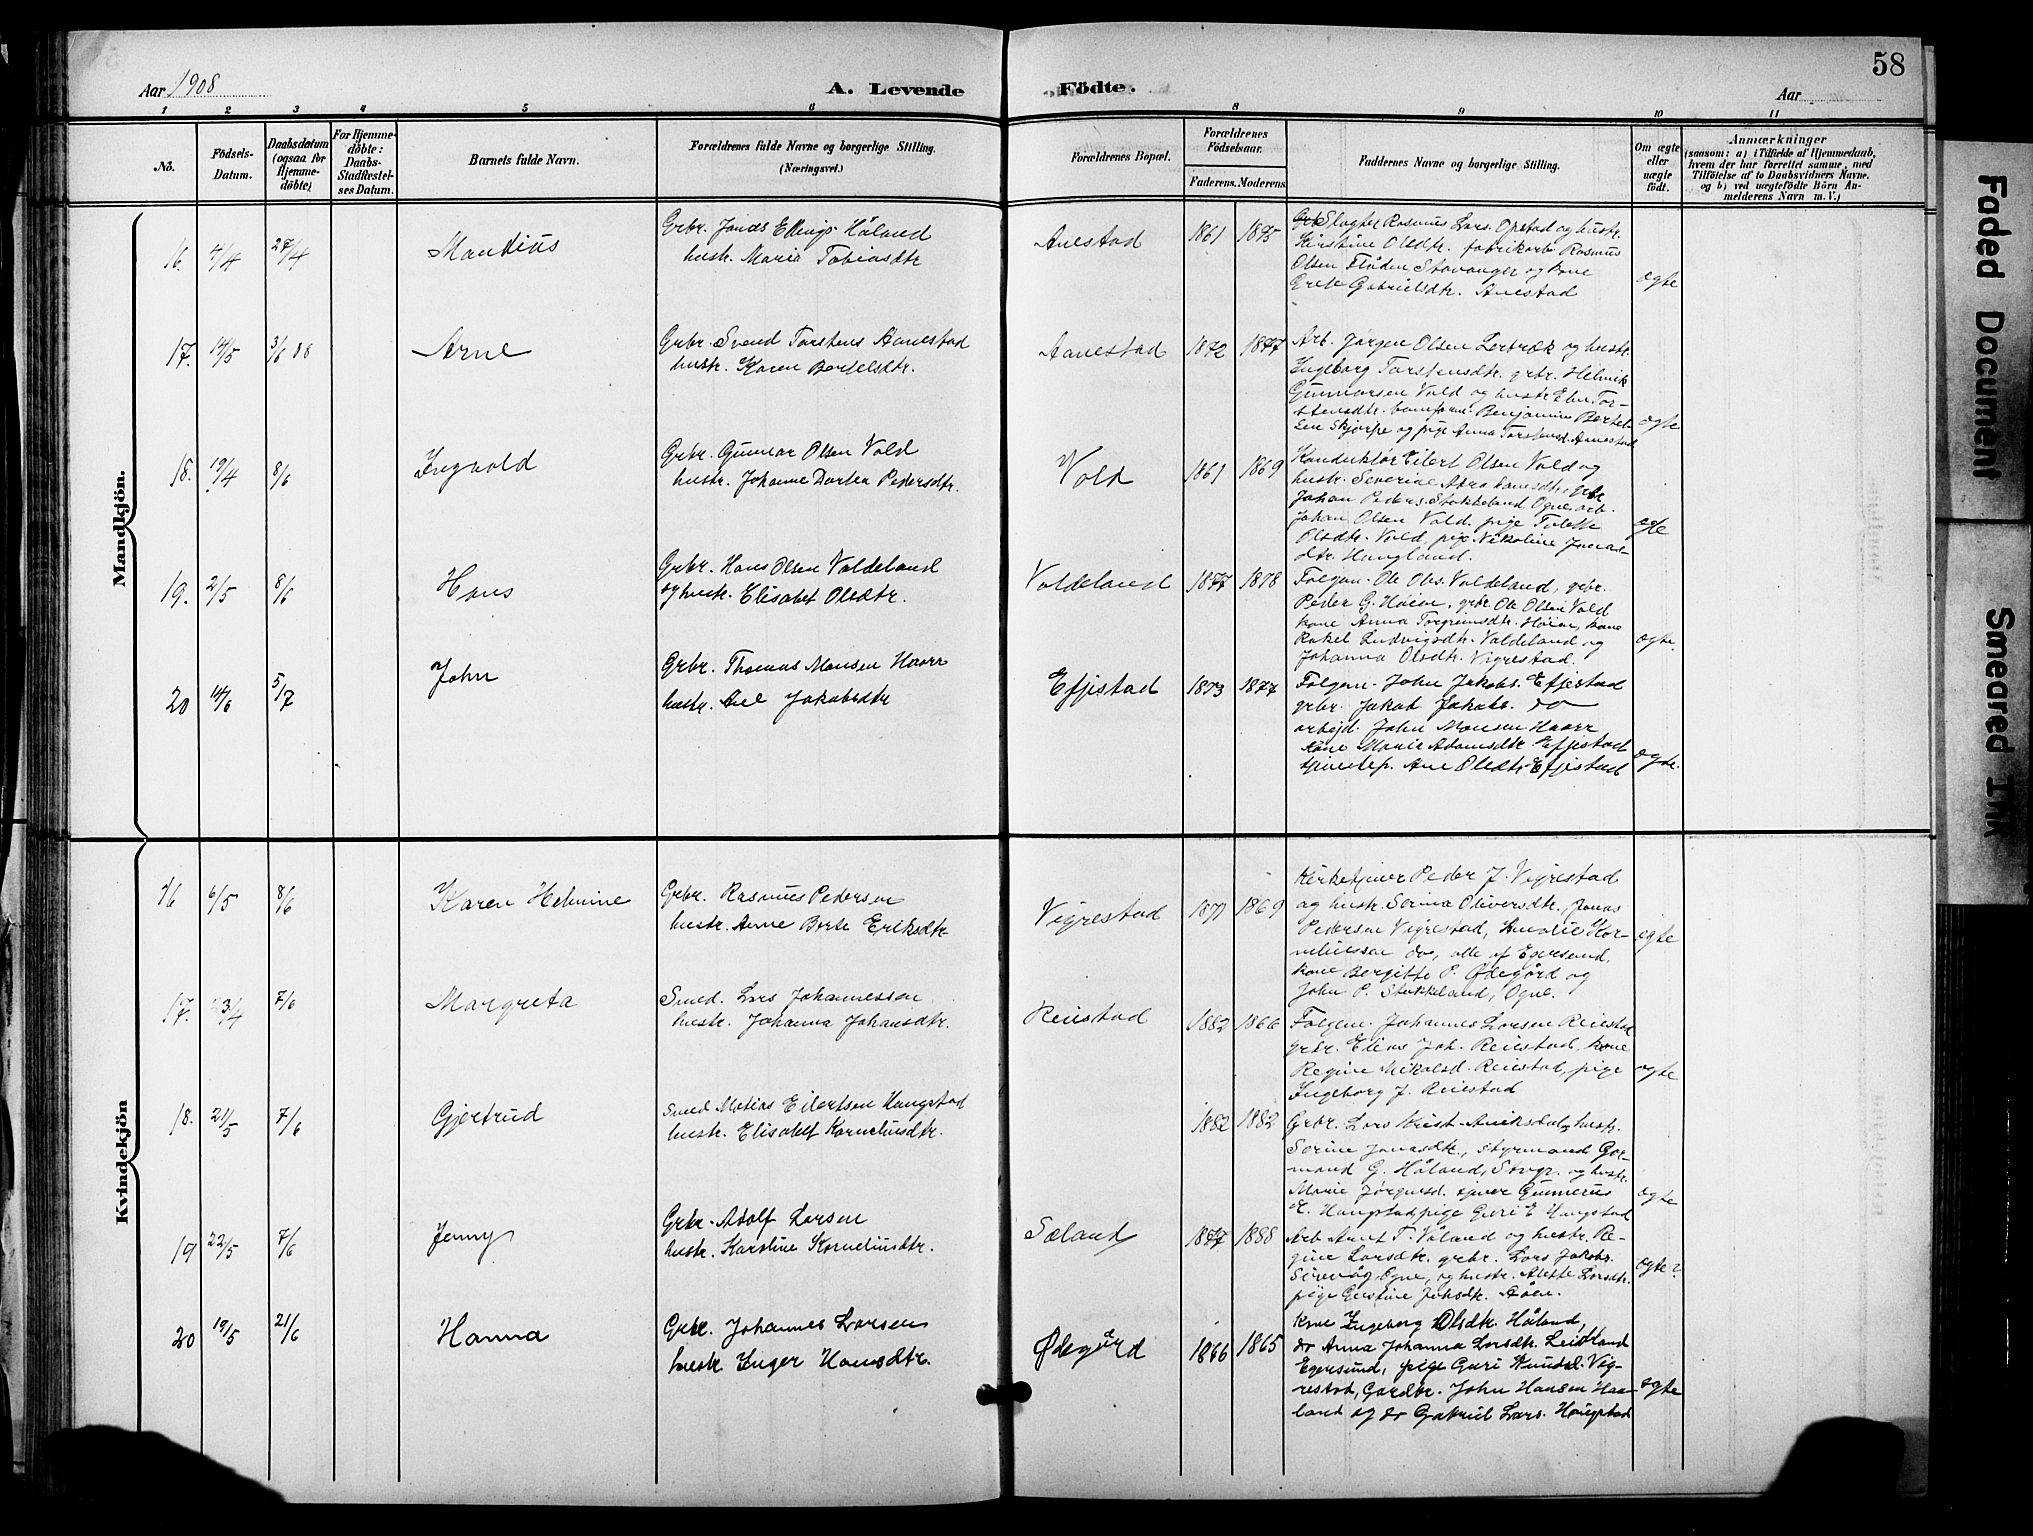 58
Aar 1908
A. Levende
Födte.
Aar
1 2 3 4 5 6 8 9 10 11
No.
Födsels-
Datum.
Daabsdatum
(ogsaa for
Hjemme-
döbte)
For Hjemme-
döbte:
Daabs-
Stadfæstel-
ses Datum.
Barnets fulde Navn.
Forældrenes fulde Navne og borgerlige Stilling.
(Næringsvei.)
Forældrenes Bopæl.
Forældrenes
Födselsaar.
Faderens. Moderens.
Faddernes Navne og borgerlige Stilling.
Om ægte
eller
uægte
födt.
Anmærkninger
(saasom: a) i Tilfælde af Hjemmedaab,
hvem der har forrettet samme, med
Tilföielse af to Daabsvidners Navne.
og b) ved uægtefödte Börn An-
melderens Navn m. V.)
Mandkjön.
16. 4/4 27/4
Mandius
Grbr. Jonas Ellings. Håland
hustr. Maria Tobiasdtr
Anestad
1861 1875
Slagter Rasmus Lars. Opstad og hustr.
Kirstine Olsdtr. fabrikarb. Rasmus
Olsen Flåden Stavanger og kone
Grete Gabrielsdtr. Anestad
ægte
17. 14/5 3/6 08
Arne
Grbr. Svend Torstens Aanestad
hustr. Karen Bertelsdtr.
Aanestad
1872 1877
Arb. Jørgen Olsen Lerbræk og hustr.
Ingeborg Torstensdtr. grbr. Helmik
Gunnarsen Vold og hustr. Elen Tor-
stensdtr. Benjamine Bertel-
sen Skjørpe og pige Anna Torstensd. Aanestad
ægte
18. 19/4 8/6
Ingvald
Grbr. Gunnar Olsen Vold
hustr. Johanne Dortea Pedersdtr.
Vold
1861 1869
Konduktør Eilert Olsen Vold og
hustr. Severine grbr
Johan Peders. Stokkeland Ogne, arb.
Johan Olsen Vold, pige Tolette
Olsdtr. Vold, pige Nikoline Jonas-
dtr. Haugland.
ægte
19. 2/5 8/6
Hans
Grbr. Hans Olsen Voldeland
og hustr. Elisabet Olsdtr.
Voldeland
1877 1878
Folgem. Ole Ols. Voldeland, grbr.
Peder G. Høiar, grbr. Ole Olsen Vold
kone Anna Torgrimsdtr. Høiar, kone
Rakel Ludvigsdtr. Voldeland og
Johanna Olsdtr. Vigrestad.
ægte.
20 14/6 5/7
John
Grbr. Thomas Monsen Haarr
hustr. Ane Jakobsdtr
Efjestad
1873 1877
Folgem. John Jakobs. Efjestad
grbr. Jakob Jakobs. do
arbejd. John Monsen Haarr
kone Marie Adamsdtr Efjestad
tjenestep. Ane Olsdtr Efjestad
ægte.
Kvindekjön
16 6/5 8/6
Karen Helmine
Grbr. Rasmus Pedersen
hustr. Anne Berte Eriksdtr
Vigrestad
1871 1869
Kirketjener Peder J. Vigrestad
og hustr. Serina Oliversdtr. Jonas
Pedersen Vigrestad, Amalie Kor-
neliussen do, alle af Egersund,
kone Bergitte P. Ødegård og
John P. Stokkeland, Ogne.
ægte
17. 23/4 7/6
Margreta
Smed. Lars Johannessen
hustr. Johanna Johansdtr.
Reiestad
1882 1866
Folgem. Johannes Larsen Reiestad
grbr. Elias Joh. Reiestad, kone
Regine Mikalsd. Reiestad, pige
Ingeborg J. Reiestad
ægte
18. 21/5 7/6
Gjertrud
Smed Matias Eilertsen Haugstad
hustr. Elisabet Korneliusdtr.
1882 1882
Grbr. Lars Krist. Aniksdal og hustr.
Serine Jonasdtr., styrmand Gor-
mand G. Håland, Stvgr. og hustr.
Marie Jørgensd. tjener Gunnerius
E. Haugstad, pige Guri E. Haugstad
ægte
19 22/5 7/6
Jenny
Grbr. Adolf Larsen
hustr. Karoline Korneliusdtr.
Sæland
1877 1888
Arb. Arnt T. Våland og hustr. Re-
gine Larsdtr. grbr. Lars Jakobs.
Sirevåg, Ogne, og hustr. Alette Larsdtr.
pige Gustine Jonsdtr. Åsen.
ægte
20 19/5 21/6
Hanna
Grbr. Johannes Larsen
hustr. Inger Hansdtr.
Ødegård
1866 1865
Kone Ingeborg Olsdtr. Håland,
do Anna Johanna Larsdtr. Leidland
Egersund, pige Guri Knudsd. Vig-
restad, Gardbr. John Hansen Haa-
land og do Gabriel Lars. Haugstad
ægte
Faded Document
Smeared Ink